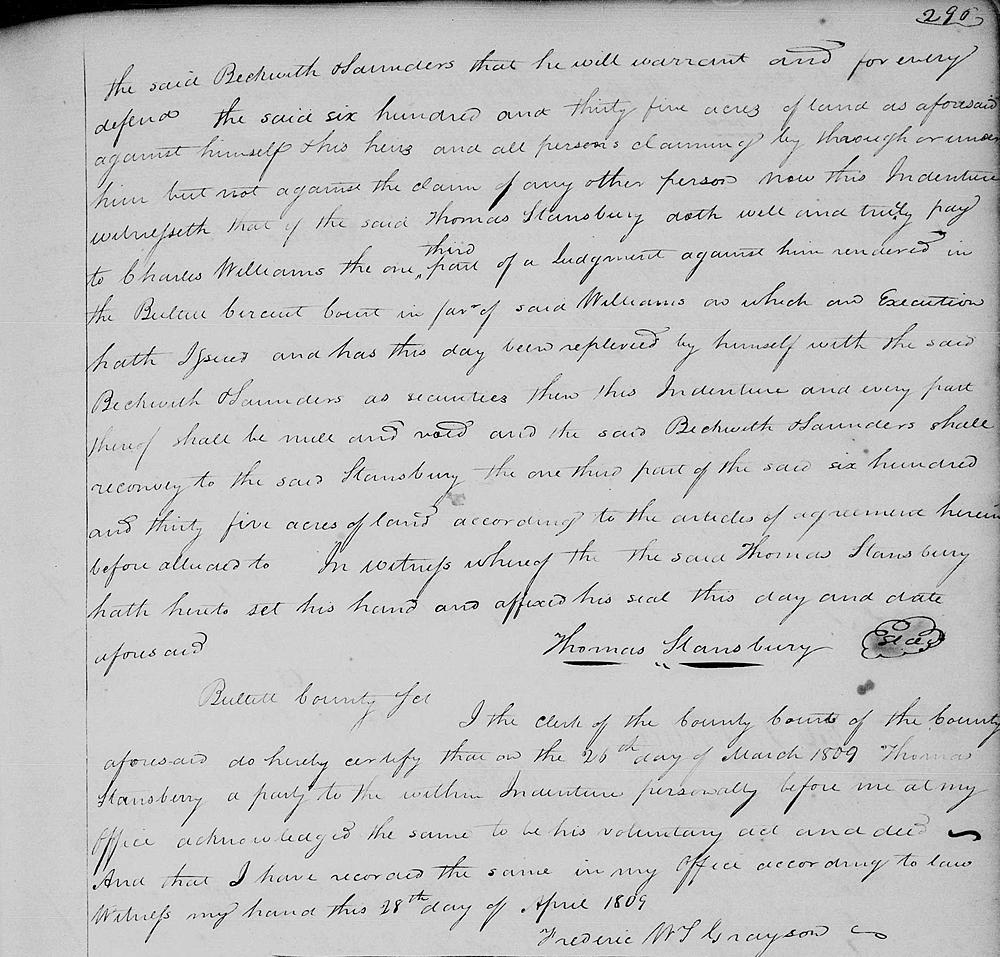 290
the said Beckwith & Saunders that he will warrant and for every
defend the said six hundred and thirty five acres of land as aforesaid
against himself & his heirs and all persons claiming by through or under
him but not against the claim of any other person Now this Indenture
witnesseth that if the said Thomas Stansbury doth well and truly pay
third
to Charles Williams the one part of a Judgment against him rendered in
the Bulett Circuit Court in favr of said Williams on which an Execution
hath Issued and has this day been replevied by himself with the said
Beckwith & Saunders as securities then this Indenture and every part
thereof shall be null and void and the said Beckwith & Saunders shall
reconvey to the said Stansbury the one third part of the said six hundred
and thirty five acres of land according to the articles of agreement herein
before alluded to In witness whereof the the said Thomas Stansbury
hath hereto set his hand and affixed his seal this day and date
aforesaid Thomas Stansbury seal
Bulett County Sct
I the clerk of the County Court of the County
aforesaid do hereby certify that on the 26th day of March 1809 Thomas
Stansberry a party to the within Indenture personally before me at my
Office acknowledged the same to be his voluntary act and deed
And that I have recorded the same in my Office according to law
Witness my hand this 28th day of April 1809
Frederic W S Grayson